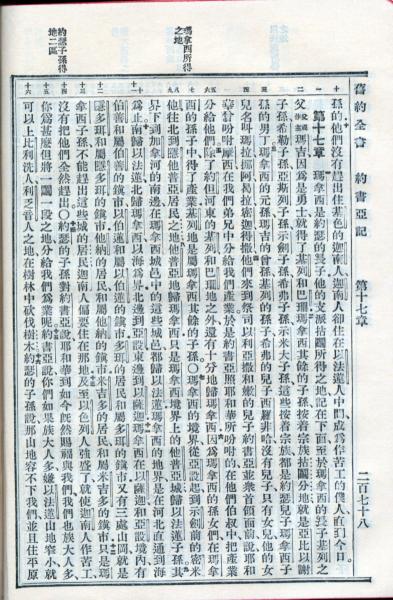 舊約全書 約書亞記 第十七章 二百七十八
瑪拿西所得
之地
約瑟子孫得
地二區
孫的他們沒有趕出住基色的迦南人迦南人卻住在以法蓮人中間成爲作苦工的僕人直到今日。
第十七章 瑪拿西是約瑟的長子他的支派拈鬮所得之地記在下面至於瑪拿西的長子基列之
父父或作主瑪吉因爲是勇士就得了基列和巴珊瑪拿西其餘的子孫按着宗族拈鬮分地就是亞比以謝
子孫希勒子孫亞斯列子孫示劍子孫希弗子孫示米大子孫這些按着宗族都是約瑟兒子瑪拿西子
孫的男丁瑪拿西的元孫瑪吉的曾孫基列的孫子希弗的兒子西羅非哈沒有兒子只有女兒他的女
兒名叫瑪拉挪阿曷拉密迦得撒他們來到祭司以利亞撒和嫩的兒子約書亞並衆首領面前說耶和
華曾吩咐摩西在我們弟兄中分給我們產業於是約書亞照耶和華所吩咐的在他們伯叔中把產業
分給他們除了約但河東的基列和巴珊地之外還有十分地歸瑪拿西因爲瑪拿西的孫女們在瑪拿
西的孫子中得了產業基列地是屬瑪拿西其餘的子孫〇瑪拿西的境界從亞設起到示劍前的密米
他往北到隱他普亞居民之地他普亞地歸瑪拿西只是瑪拿西境界上的他普亞城歸以法蓮子孫其
界下到加拿河的南邊在瑪拿西城邑中的這些城邑都歸以法蓮瑪拿西的地界是在河北直通到海
爲止南歸以法蓮北歸瑪拿西以海爲界北邊到亞設東邊到以薩迦瑪拿西在以薩迦和亞設境內有
伯善和屬伯善的鎮市以伯蓮和屬以伯蓮的鎮市多珥的居民和屬多珥的鎮市又有三處山岡就是
隱多珥和屬隱多珥的鎮市他納的居民和屬他納的鎮市米吉多的居民和屬米吉多的鎮市只是瑪
拿西子孫不能趕出這些城的居民迦南人偏要住在那地及至以色列人強盛了就使迦南人作苦工
沒有把他們全然趕出〇約瑟的子孫對約書亞說耶和華到如今既然賜福與我們我們也族大人多
你爲甚麼但將一鬮一段之地分給我們爲業呢約書亞說你們如果族大人多嫌以法蓮山地窄小就
可以上比利洗人利乏音人之地在樹林中砍伐樹木約瑟的子孫說那山地容不下我們並且住平原